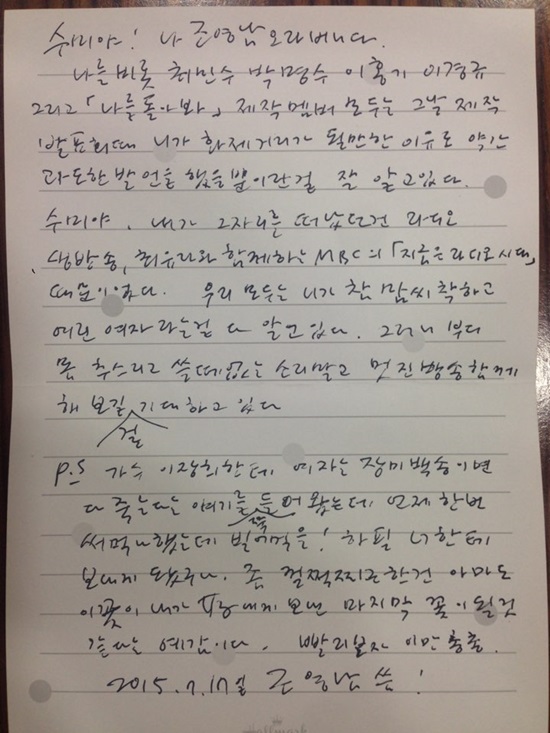 수미야! 나 조영남 오라버니다.
나를 비롯 최민수 박명수 이홍기 이경규
그리고 「나를 돌아봐」 제작 멤버 모두는 그날 제작
발표회때 니가 화제거리가 될만한 이유로 약간
과도한 발언을 했을 뿐이란걸 잘 알고 있다.
수미야. 내가 그자리를 떠났던건 라디오
생방송, 최유라와 함께하는 MBC의 「지금은 라디오 시대」
때문이였다. 우리 모두는 니가 참 맘씨 착하고
여린 여자라는걸 다 알고 있다. 그러니 부디
몸 추스리고 쓸데없는 소리말고 멋진 방송 함께
해 보길 기대하고 있다
걸
P.S 가수 이장희한테 여자는 장미 백송이면
다 죽는다는 얘기를 들어 왔는데 언제 한번
쭉
써먹나 했는데 빌어먹을! 하필 너한테
보내게 됐구나. 좀 껄쩍찌근한건 아마도
이꽃이 내가 평생에 보낸 마지막 꽃이 될것
같다는 예감이다. 빨리보자 이만 총총.
2015.7.17일 조영남 씀!